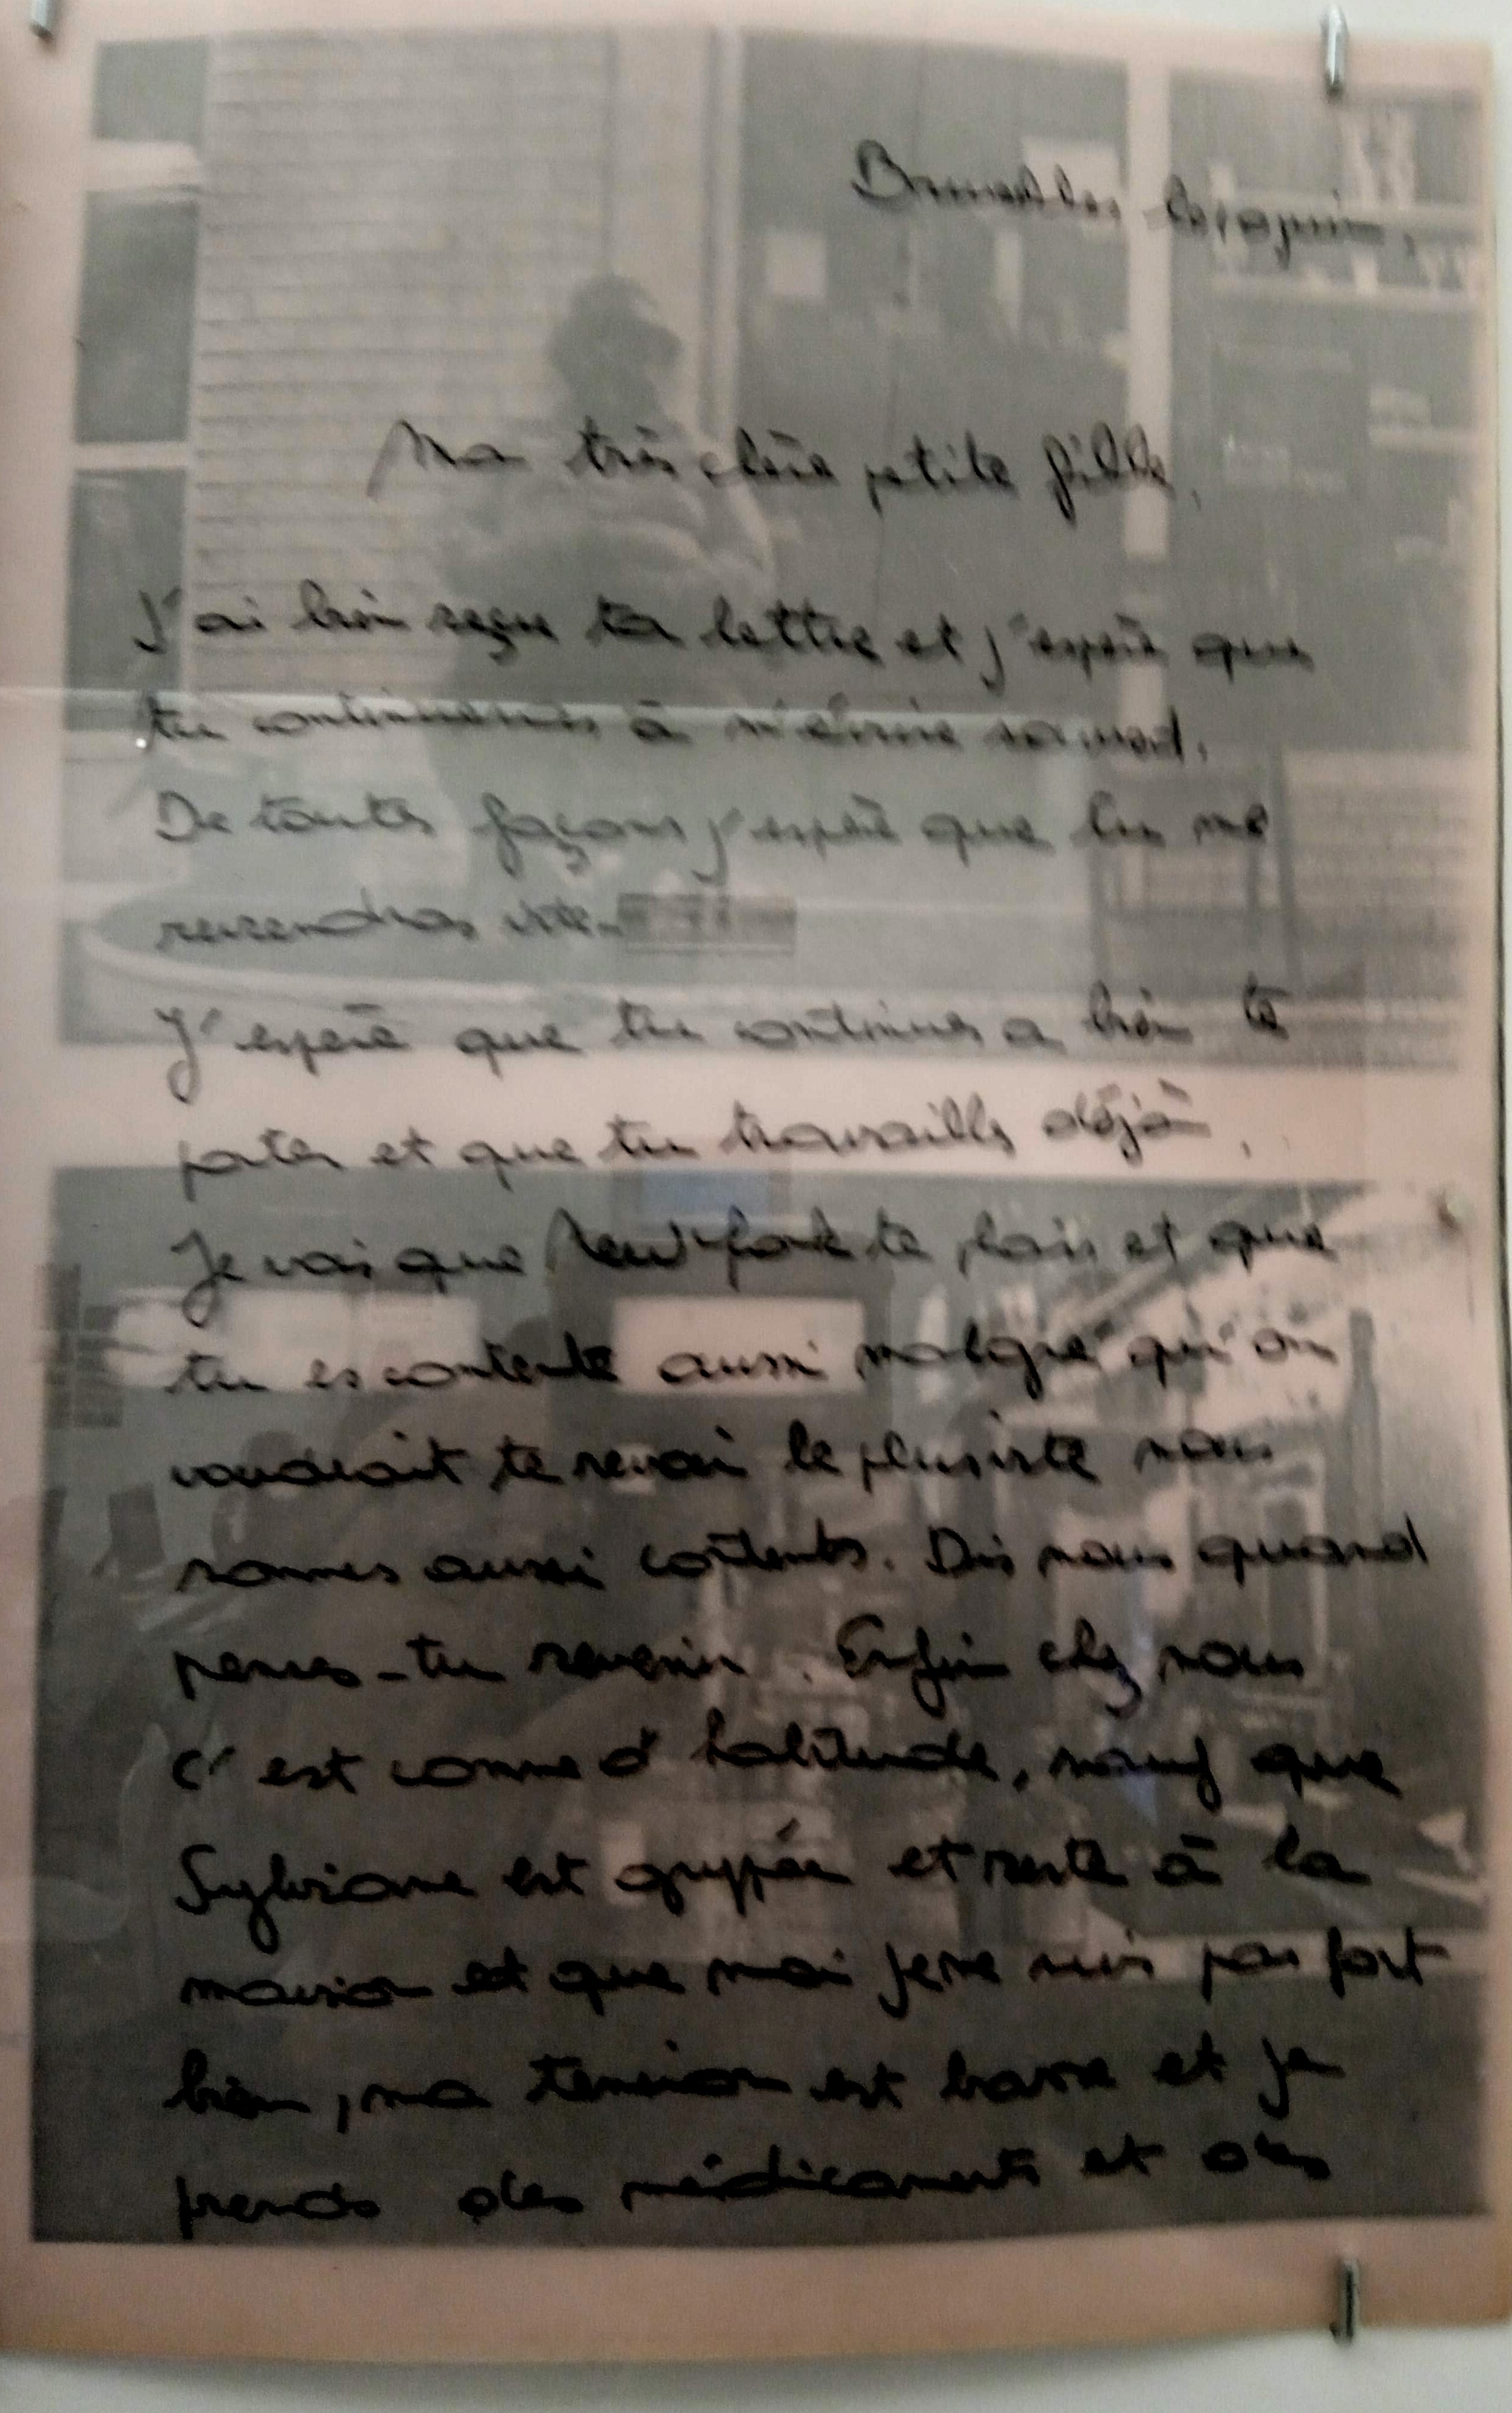 Bruxelles le 10 juin.
Ma très chère petite fille,
J'ai bien reçue ta lettre et j'espère que
tu continueras à m'écrire souvent.
De toutes façons j'espère que tu me
reviendras vite.
J'espère que tu continues a bien te
porter et que tu travailles déjà.
Je vois que New-York te plais et que
tu es contente aussi malgré qu'on
voudrait te revoir le plus vite nous
sommes aussi contents. Dis nous quand
penses-tu revenir. Enfin chez nous
c'est comme d'habitude, sauf que
Sylviane est grippée et reste à la
maison et que moi je ne suis pas fort
bien, ma tension est basse et je
prends des médicaments et des